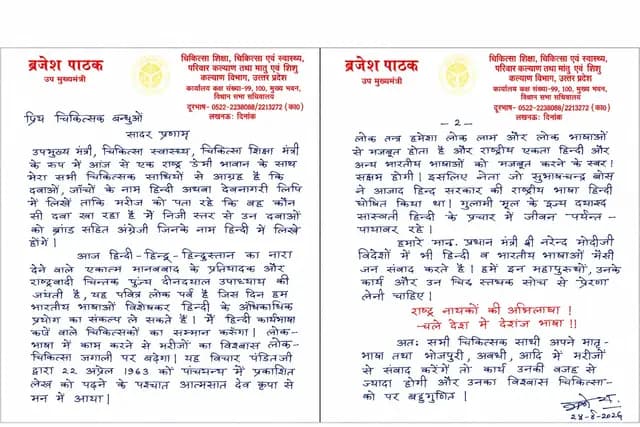 ब्रजेश पाठक
उप मुख्यमंत्री
चिकित्सा शिक्षा, चिकित्सा एवं स्वास्थ्य,
परिवार कल्याण तथा मातृ एवं शिशु
कल्याण विभाग, उत्तर प्रदेश
कार्यालय कक्ष संख्या-99, 100, मुख्य भवन,
विधान सभा सचिवालय
दूरभाष- 0522-2238088/2213272 (का0)
लखनऊ: दिनांक
प्रिय चिकित्सक बन्धुओं
सादर प्रणाम्
उपमुख्य मंत्री, चिकित्सा स्वास्थ्य, चिकित्सा शिक्षा मंत्री
के रूप में आज से एक राष्ट्र प्रेमी भावान के साथ
मेरा सभी चिकित्सक साथियों से आग्रह है कि
दवाओं, जाँचों के नाम हिन्दी अथवा देवनागरी लिपि
में लिखें ताकि मरीज को पता रहे कि वह कौन
सी दवा खा रहा है मैं निजी स्तर से उन दवाओं
को ब्रांड सहित अंग्रेजी जिनके नाम हिन्दी में लिखे
होंगे।
आज हिन्दी-हिन्दू-हिन्दुस्तान का नारा
देने वाले एकात्म मानववाद के प्रतिपादक और
राष्ट्रवादी चिन्तक पूज्य दीनदयाल उपाध्याय की
जयंती है, यह पवित्र लोक पर्व है जिस दिन हम
भारतीय भाषाओं विशेषकर हिन्दी के अधिकाधिक
प्रयोग का संकल्प ले सकते हैं। मैं हिन्दी कार्यभाषा
वाले चिकित्सकों का सम्मान करूंगा। लोक-
भाषा में काम करने से मरीजों का विश्वास लोक-
चिकित्सा पर बढ़ेगा। यह विचार पंडितजी
द्वारा 22 अप्रेल 1963 को में प्रकाशित
लेख को पढ़ने के पश्चात आत्मसात देव कृपा से
मन में आया।
ब्रजेश पाठक
उप मुख्यमंत्री
चिकित्सा शिक्षा, चिकित्सा एवं स्वास्थ्य,
परिवार कल्याण तथा मातृ एवं शिशु
कल्याण विभाग, उत्तर प्रदेश
कार्यालय कक्ष संख्या-99, 100, मुख्य भवन,
विधान सभा सचिवालय
दूरभाष- 0522-2238088/2213272 (का0)
लखनऊ: दिनांक
- 2 -
लोक तन्त्र हमेशा लोक लाभ और लोक भाषाओं
से मजबूत होता है और राष्ट्रीय एकता हिन्दी और
अन्य भारतीय भाषाओं को मजबूत करने के स्वर।
सक्षम होगी। इसलिए नेता जी सुभाषचन्द्र बोस
ने आजाद हिन्द सरकार की राष्ट्रीय भाषा हिन्दी
घोषित किया था। गुलामी मूल के
सास्वती हिन्दी के प्रचार में जीवन पर्यन्त-
रहे।
हमारे मान. प्रधान मंत्री श्री नरेन्द्र मोदीजी
विदेशों में भी हिन्दी व भारतीय भाषाओं में
जन संवाद करते है। हमें इन महापुरुषों, उनके
कार्य और उन सोच से प्रेरणा
लेनी चाहिए।
राष्ट्र नायकों की अभिलाषा।
-चले देश में देशज भाषा !!
अतः सभी चिकित्सक साथी अपने मातृ-
भाषा तथा भोजपुरी, अवधी, आदि में मरीजों
से संवाद करेंगे तो कार्य उनकी वजह से
ज्यादा होगी और उनका विश्वास चिकित्सा-
को पर बहुगुणित।